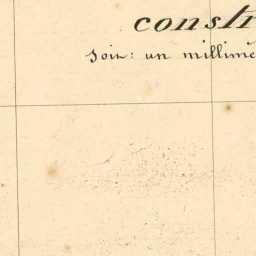 constr
soit: un millimè